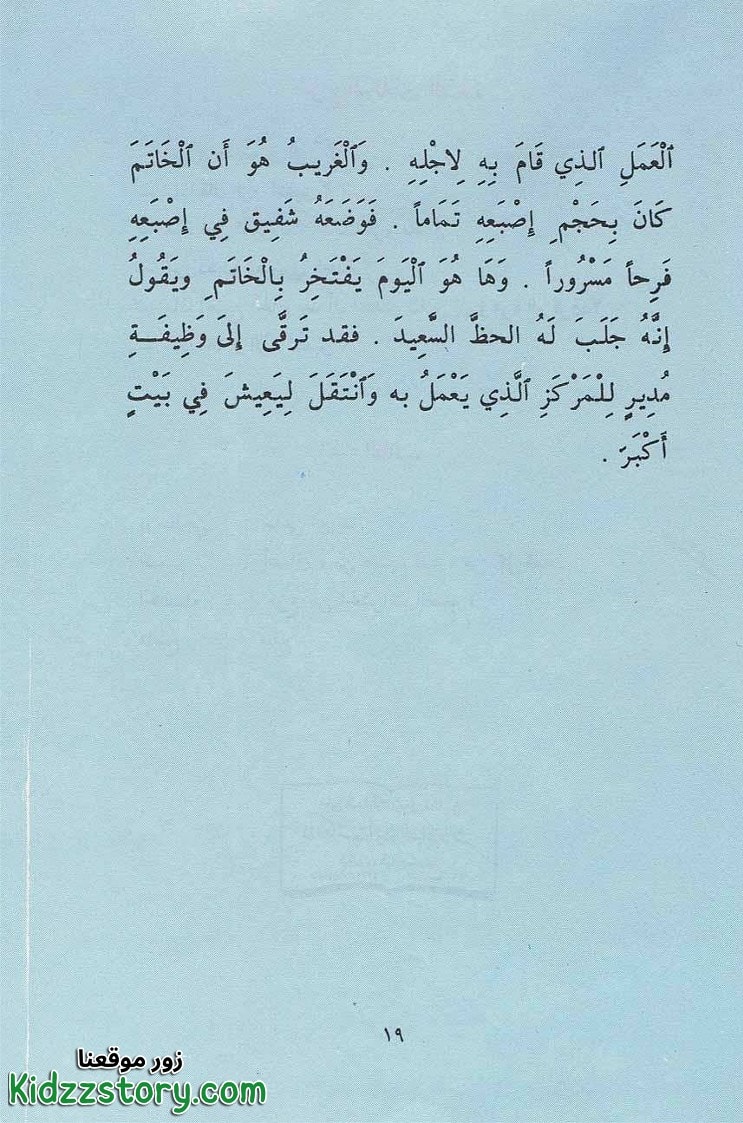 ٱلْعَمَلِ ٱلذِي قَامَ بِهِ لِاجْلِهِ . وَٱلْغَرِيبُ هُوَ أَن ٱلْخَاتَمَ
كَانَ بِحَجْمِ إِصْبَعِهِ تَمَاماً . فَوَضَعَهُ شَفِيق فِي إِصْبَعِهِ
فَرِحاً مَسْرُوراً . وَهَا هُوَ ٱلْيَومَ يَفْتَخِرُ بِالْخَاتَمِ ويَقُولُ
إِنَّهُ جَلَبَ لَهُ الحظَّ السَّعِيدَ . فقد تَرقَّى إِلىَ وَظِيفَـــةِ
مُدِيرٍ لِلْمَرْكَزِ ٱلَّذِي يَعْمَلُ به وَٱنْتَقَلَ لِيَعِيشَ فِي بَيْتٍ
أَكْبَرَ .
١٩
زور موقعنا
Kidzzstory.com